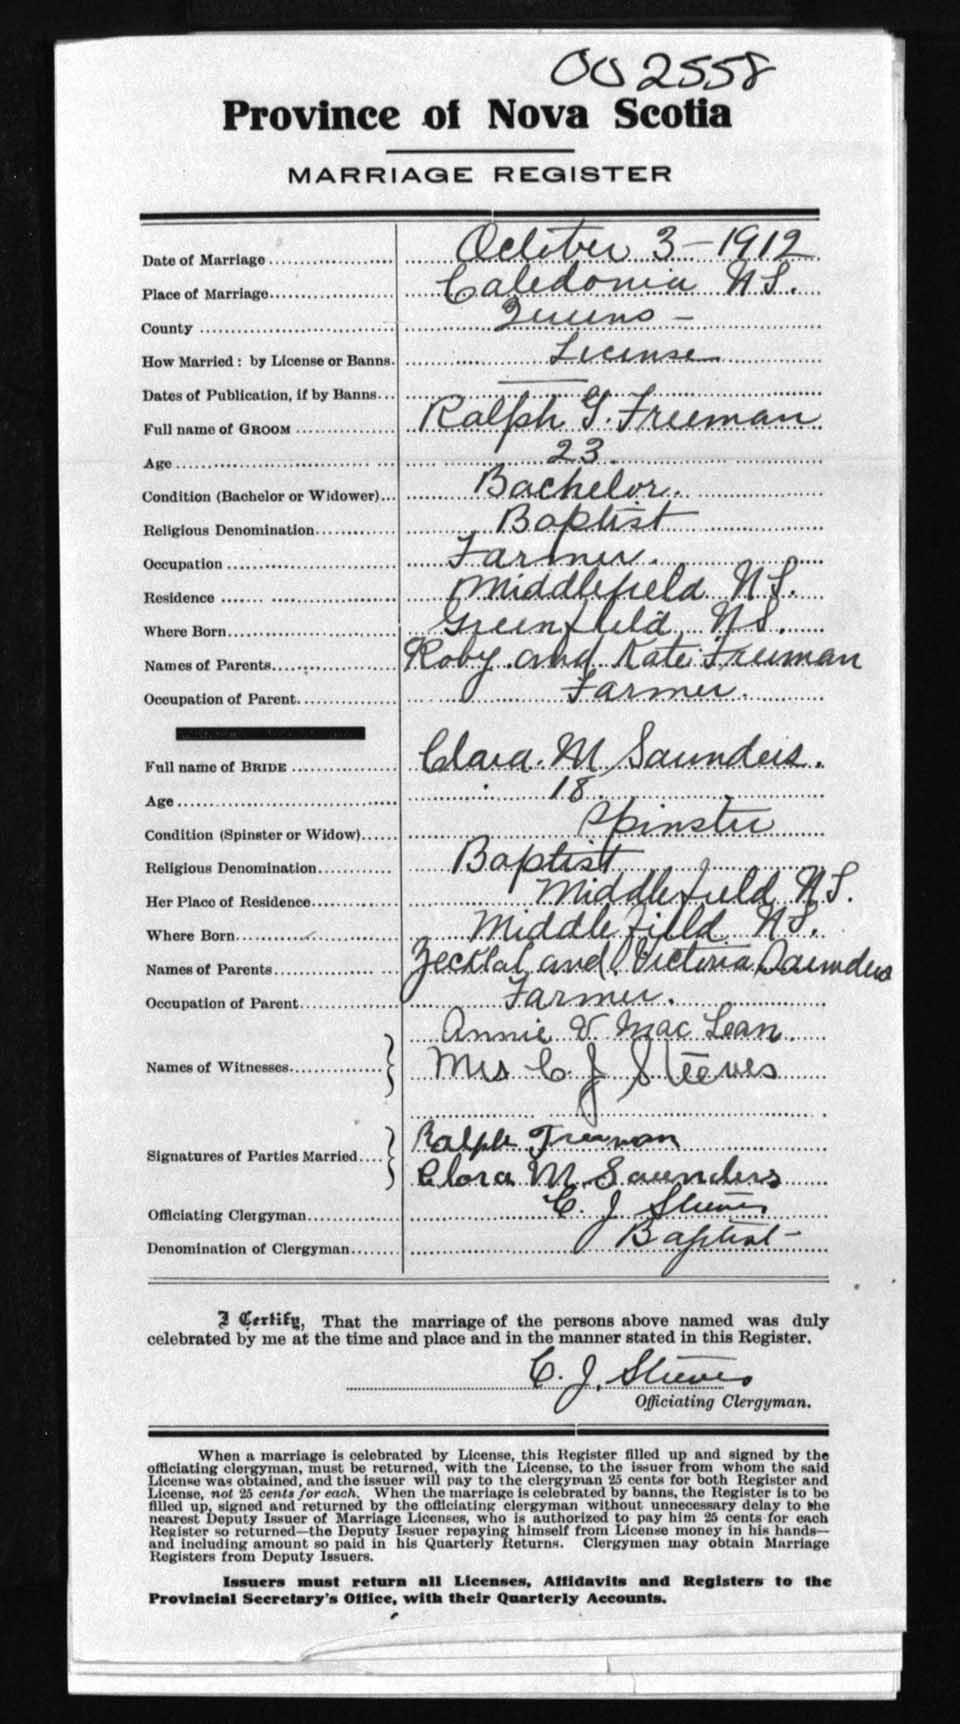 002558
Province of Nova Scotia
MARRIAGE REGISTER
Date of Marriage October 3 - 1912
Place of Marriage Caledonia N.S.
County Queens -
How Married: by License or Banns. License
Dates of Publication, if by Banns... —
Full name of GROOM Ralph G. Freeman
Age 23.
Condition (Bachelor or Widower)... Bachelor.
Religious Denomination Baptist
Occupation Farmer.
Residence Middlefield N.S.
Where Born Greenfield N.S.
Names of Parents Roby and Kate Freeman
Occupation of Parent Farmer.
Full name of BRIDE Clara. M Saunders.
Age 18.
Condition (Spinster or Widow) Spinster
Religious Denomination Baptist
Her Place of Residence Middlefield N.S.
Where Born Middlefield N.S.
Names of Parents and Victoria Saunders
Occupation of Parent Farmer.
Annie V. MacLean.
Names of Witnesses Mrs C J Steeves
Signatures of Parties Married Ralph Freeman
Clara M. Saunders
Officiating Clergyman C. J. Steeves
Denomination of Clergyman Baptist -
I Certify, That the marriage of the persons above named was duly
celebrated by me at the time and place and in the manner stated in this Register.
C. J. Steeves
Officiating Clergyman.
When a marriage is celebrated by License, this Register filled up and signed by the
officiating clergyman, must be returned, with the License, to the issuer from whom the said
License was obtained, and the issuer will pay to the clergyman 25 cents for both Register and
License, not 25 cents for each. When the marriage is celebrated by banns, the Register is to be
filled up, signed and returned by the officiating clergyman without unnecessary delay to the
nearest Deputy Issuer of Marriage Licenses, who is authorized to pay him 25 cents for each
Register so returned—the Deputy Issuer repaying himself from License money in his hands—
and including amount so paid in his Quarterly Returns. Clergymen may obtain Marriage
Registers from Deputy Issuers.
Issuers must return all Licenses, Affidavits and Registers to the
Provincial Secretary's Office, with their Quarterly Accounts.